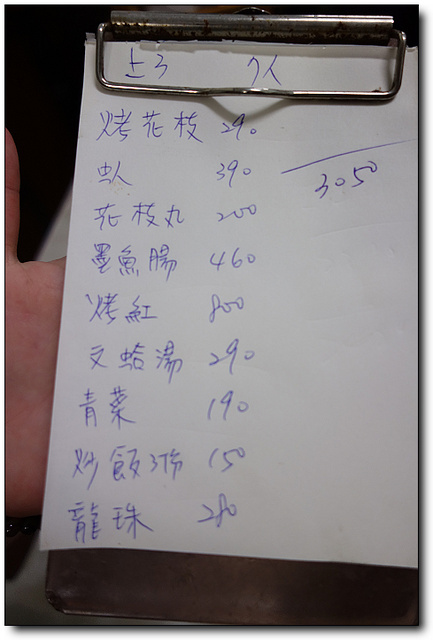 上3 7人
烤花枝 290
虫人 390
3050
花枝丸 200
墨魚腸 460
烤紅 800
文蛤湯 290
青菜 190
炒飯3份 150
龍珠 280